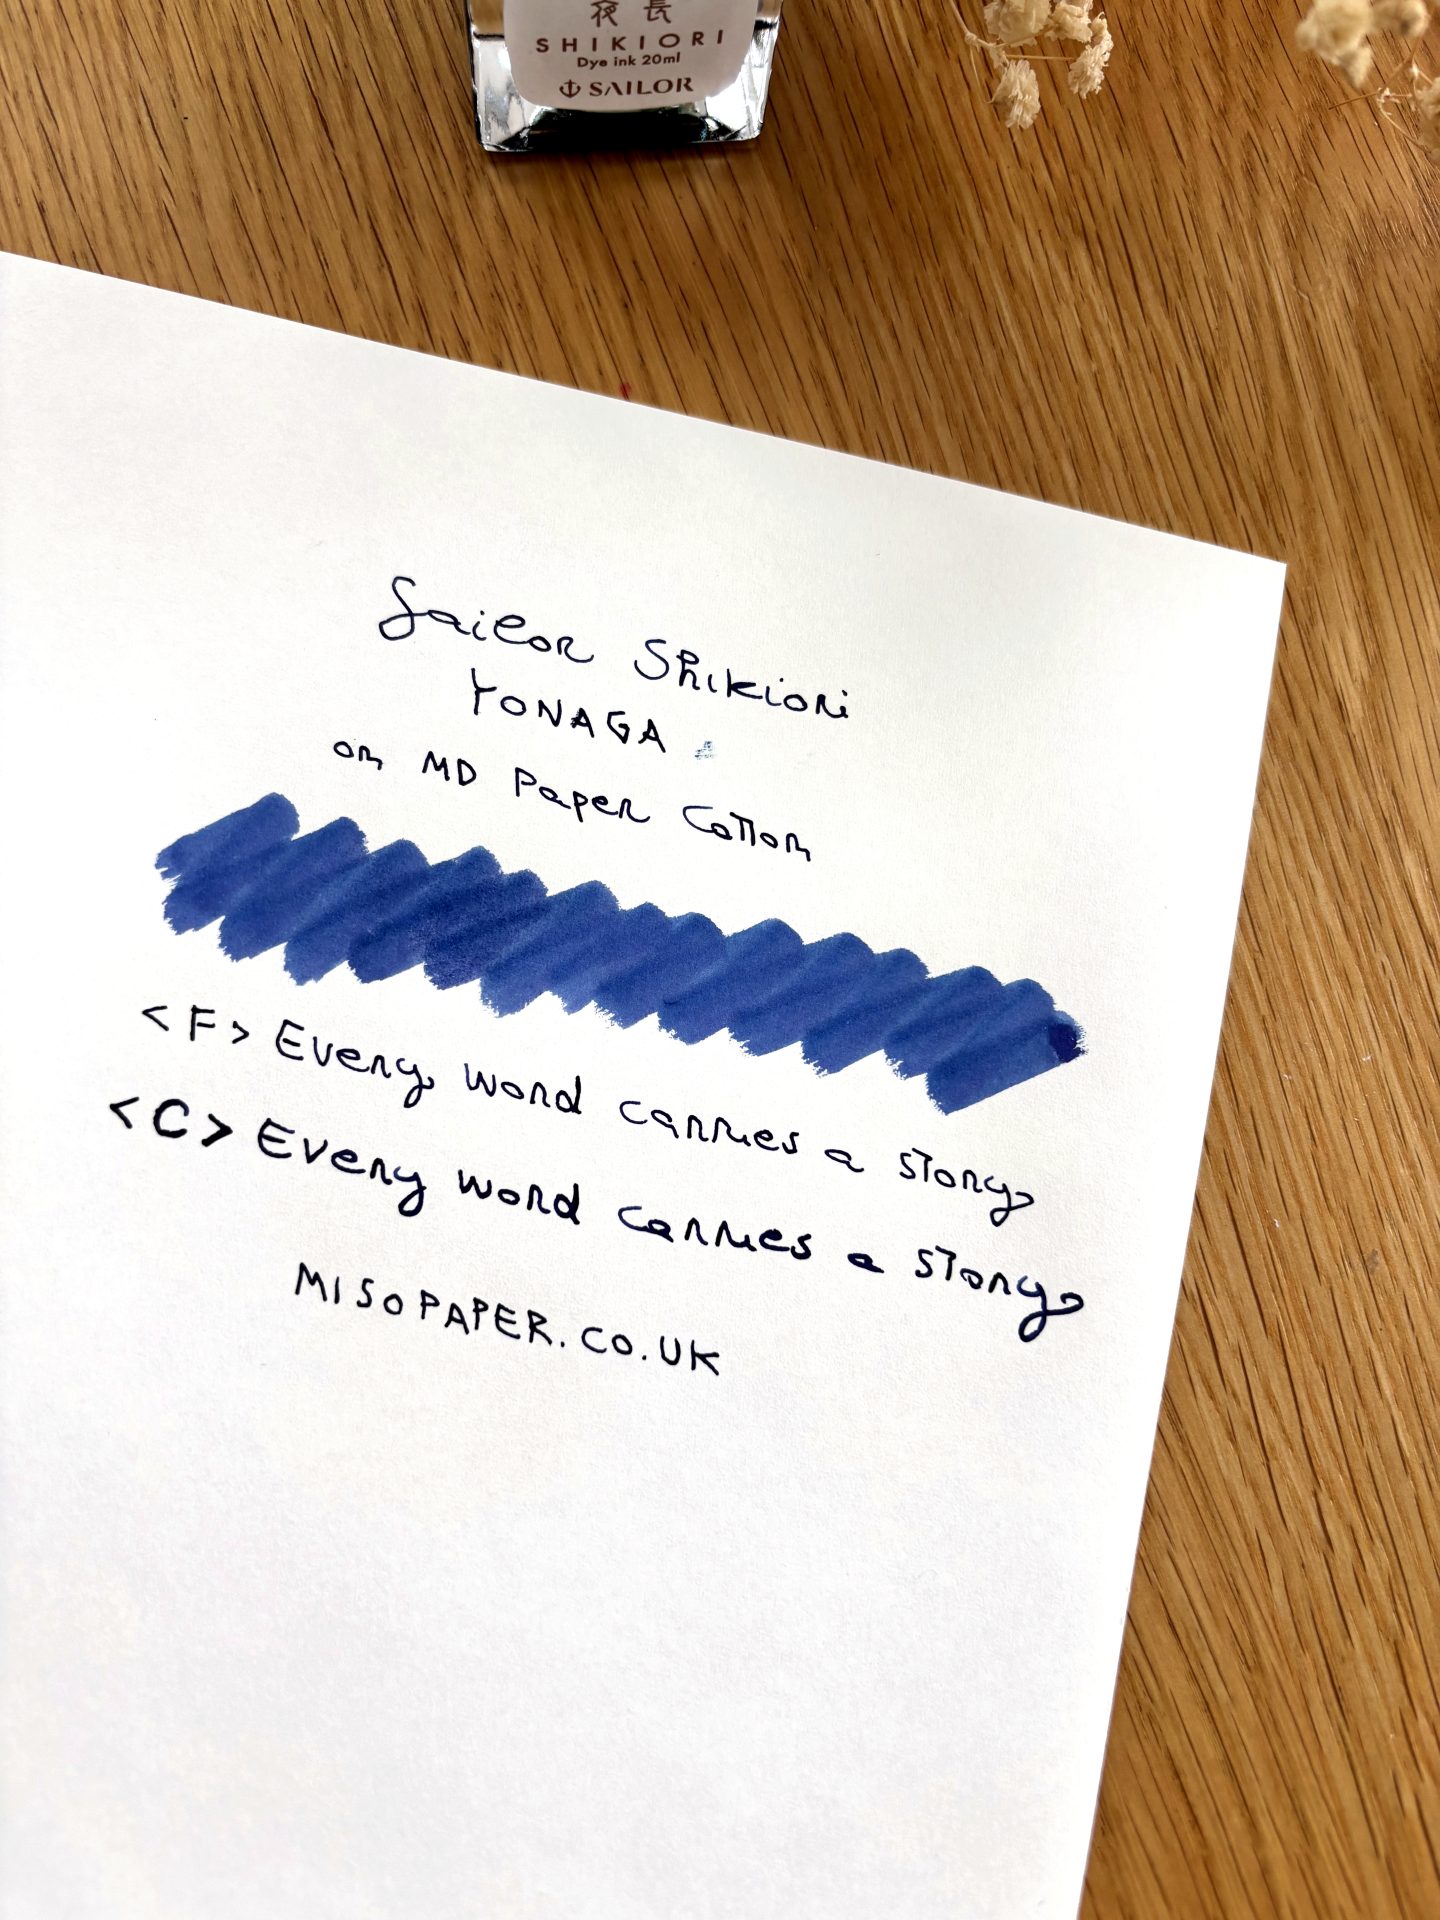 夜長
SHIKIORI
Dye ink 20ml
SAILOR
Sailor Shikiori
YONAGA
on MD Paper Cotton
<F> Every word carries a story
<C> Every word carries a story
MISOPAPER.CO.UK